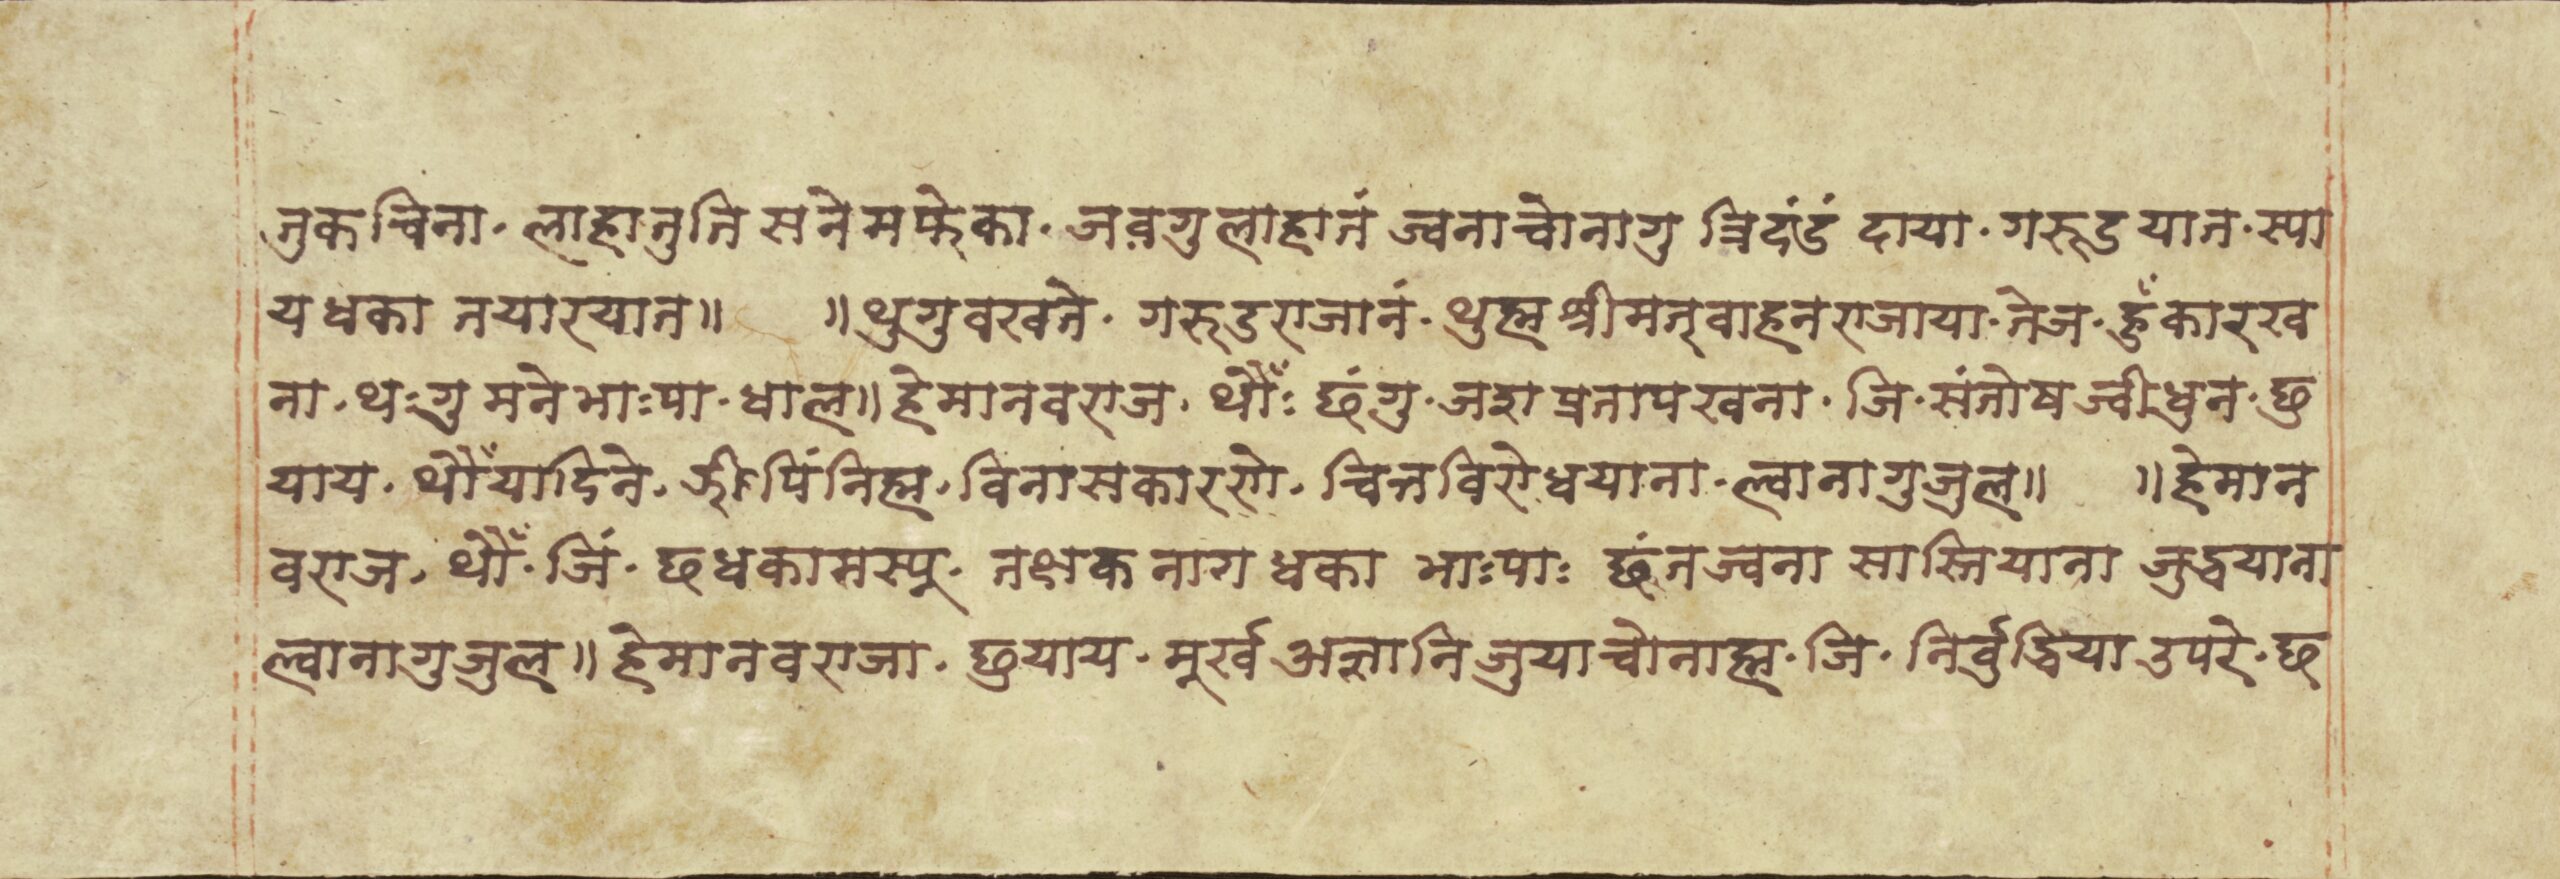 जुक चिना . लाहातुति सने मफेका . जवगु लाहातं ज्वनाचोनागु त्रिदंडं दाया . गरूडयात . स्या
य धका तयारयात ॥ ॥ थुगु वखते . गरूडराजानं . थुह्म श्रीमत्वाहनराजाया . तेज . हुँकार ख
ना . थःगु मने भाःपा . धाल ॥ हे मानवराज . थौँः छंगु . जश प्रताप खना . जि . संतोष ज्वीधुन . छु
याय . थौँया दिने . झीपिं निह्म . विनासकारसे . चित्तविरोध याना . ल्वानागु जुल ॥ ॥ हे मान
वराज . थौँ . जिं . छ धका मस्यू . तक्षक नाग धका भाःपाः छंत ज्वना सास्तियाना जुद्धयाना
ल्वानागु जुल ॥ हे मानवराजा . छुयाय . मूर्ख अज्ञानि जुयाचोनाह्म . जि . निर्वुद्धिया उपरे . छ